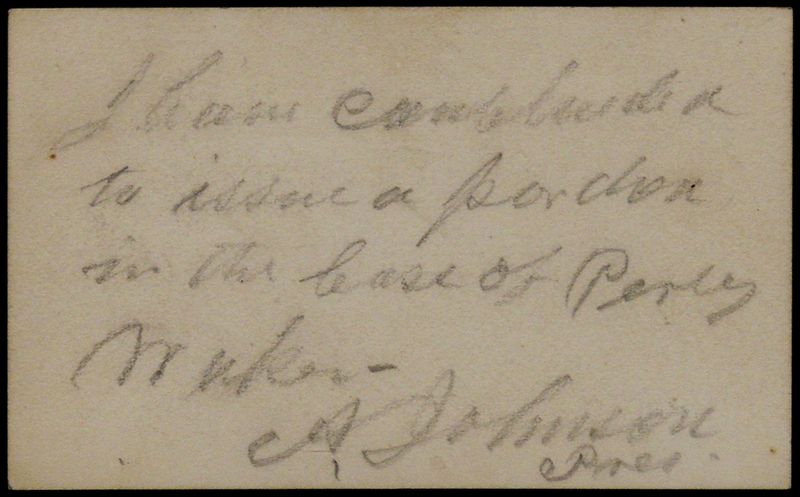 I have concluded
to issue a pardon
in the Case of Perley
Walker –
A Johnson
Pres.